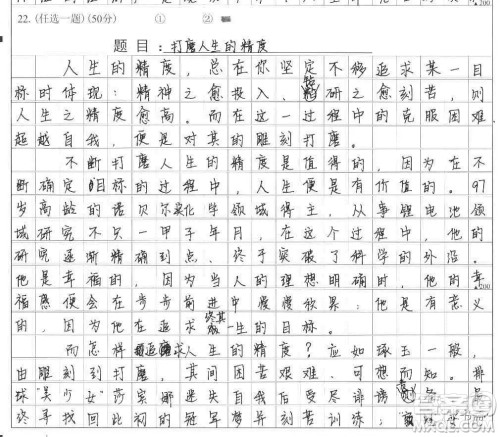 22.(任选一题)(50分) ① ②
题目:打磨人生的精度
人生的精度,总在你坚定不移追求某一目
标时体现:精神之愈投入、钻研之愈刻苦,则
人生之精度愈高。而在这一过程中的克服困难、
超越自我,便是对其的雕刻打磨。
不断打磨人生的精度是值得的,因为在不
断确定目标的过程中,人生便是有价值的。97
岁高龄的诺贝尔奖化学领域得主,从事锂电池领
域研究不只一甲子年月,在这个过程中,他的
研究逐渐精确到点、终于突破了科学的外沿。
他是幸福的,因为当人的理想明确时,他的幸
福感便会在步步前进中慢慢积累;他是有意义
的,因为他在追求终其一生的目标。
而怎样追求人生的精度?应如琢玉一般,
由雕刻到打磨,其间困苦艰难,可想而知。排
球"美少女"莎宾娜迷失自我后受尽诽谤
终寻找回此初的冠军梦异刻苦训练;